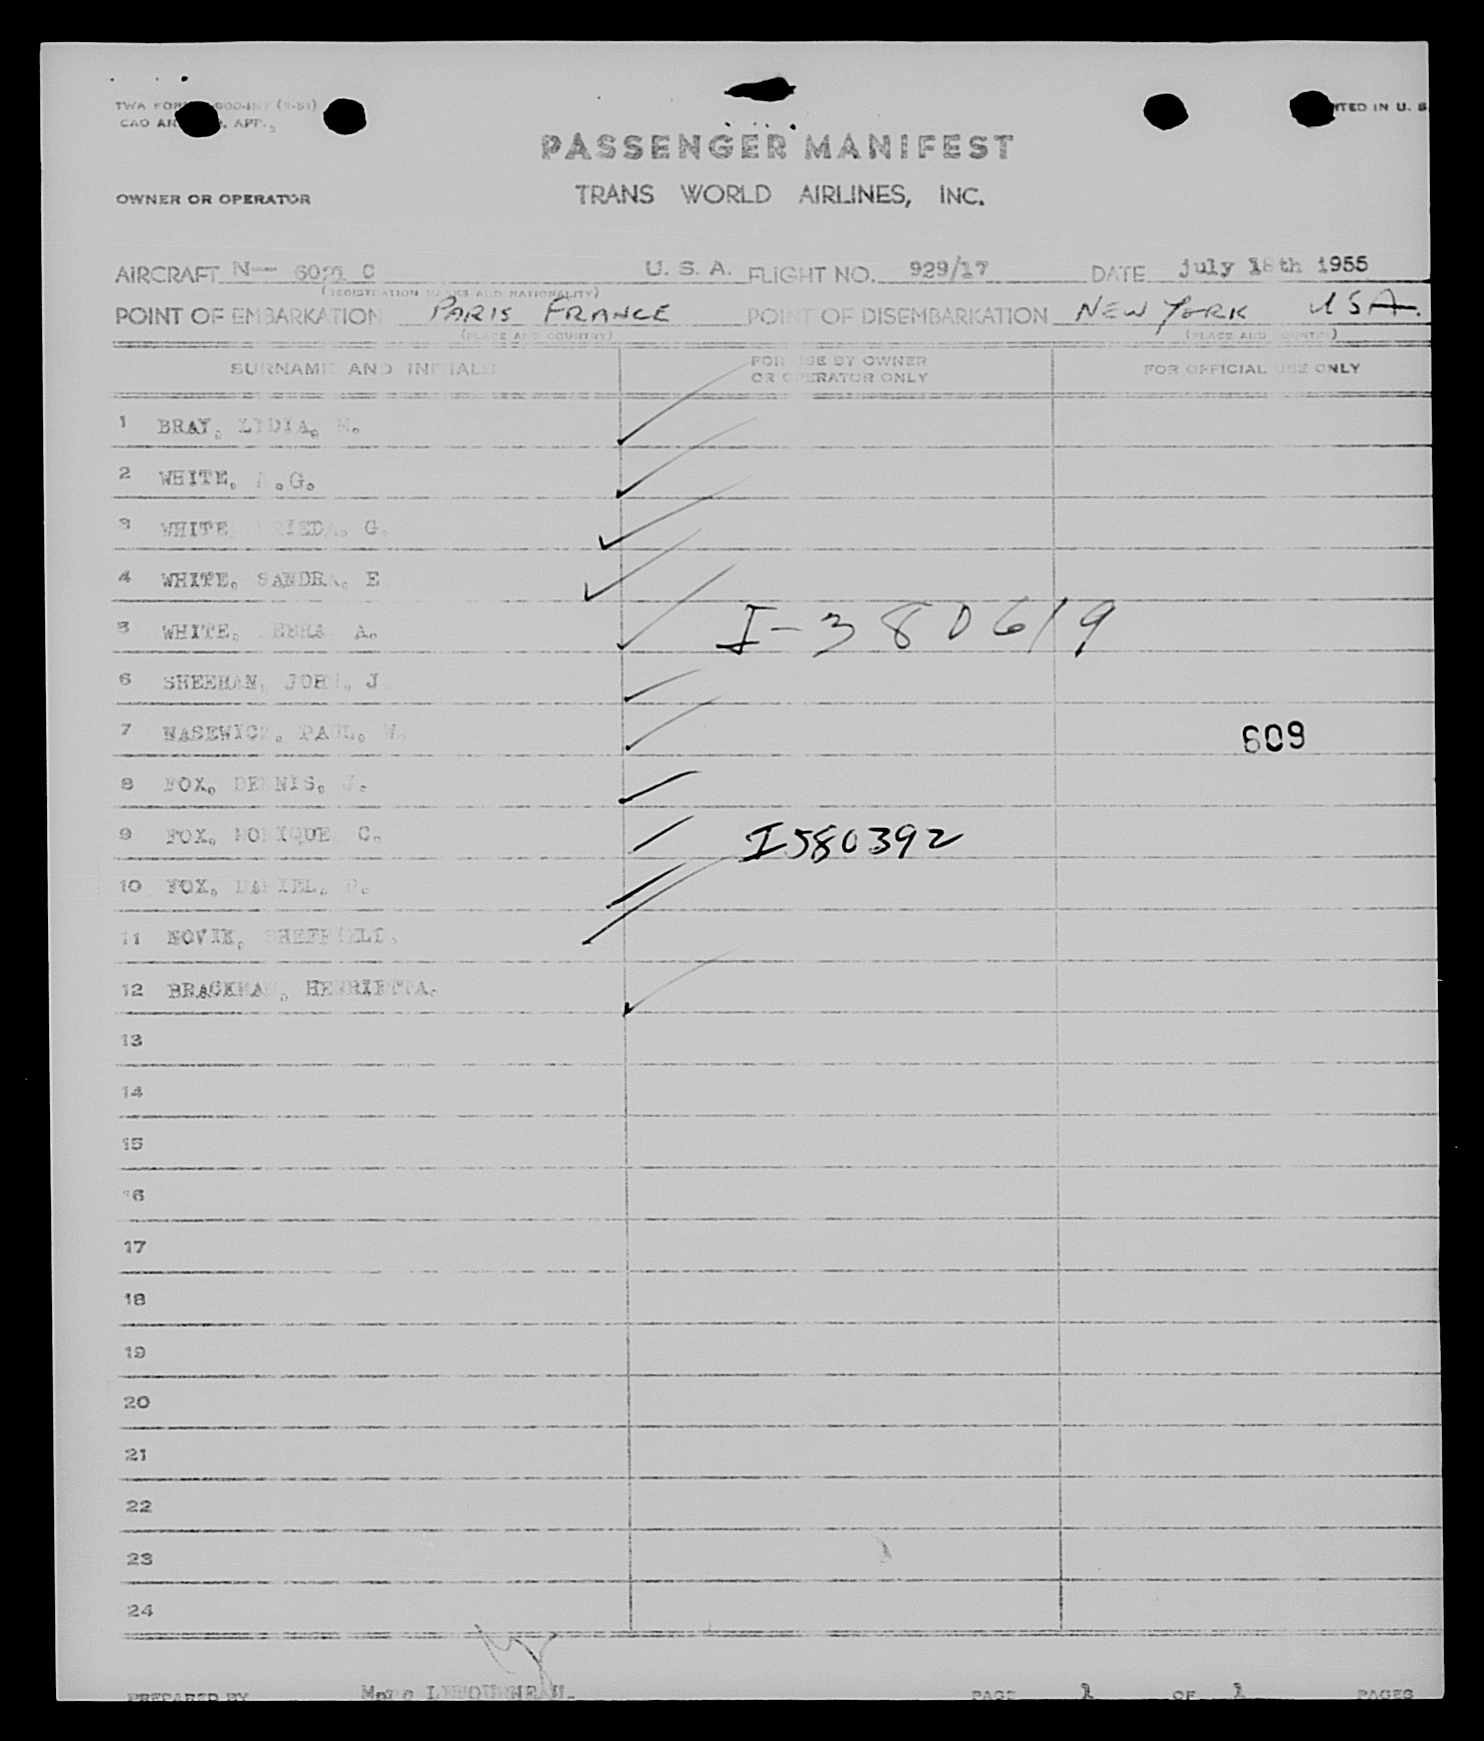 TWA FORM
PRINTED IN U. S
CAO AN APP.
PASSENGER MANIFEST
OWNER OR OPERATOR TRANS WORLD AIRLINES, INC.
AIRCRAFT N— C U. S. A. FLIGHT NO. 929/17 DATE july 18th 1955
(REGISTRATION MARKS AND NATIONALITY)
POINT OF EMBARKATION PARIS FRANCE POINT OF DISEMBARKATION NEW YORK USA.
(PLACE AND COUNTRY) (PLACE AND COUNTRY)
SURNAME AND INITIALS FOR USE BY OWNER OR OPERATOR ONLY FOR OFFICIAL USE ONLY
1 BRAY, LYDIA,
2 WHITE, .G.
3 WHITE G.
4 WHITE, SANDRA, E
5 WHITE, A. I-380619
6 SHEEHAN, JOHN, J
7 PAUL, W. 609
8 FOX, DENNIS, J.
9 FOX, MONIQUE C. I580392
10 FOX, DANIEL,
11 SHEFFIELD.
12 HENRIETTA.
13
14
15
16
17
18
19
20
21
22
23
24
PREPARED BY PAGE 1 OF 1 PAGES